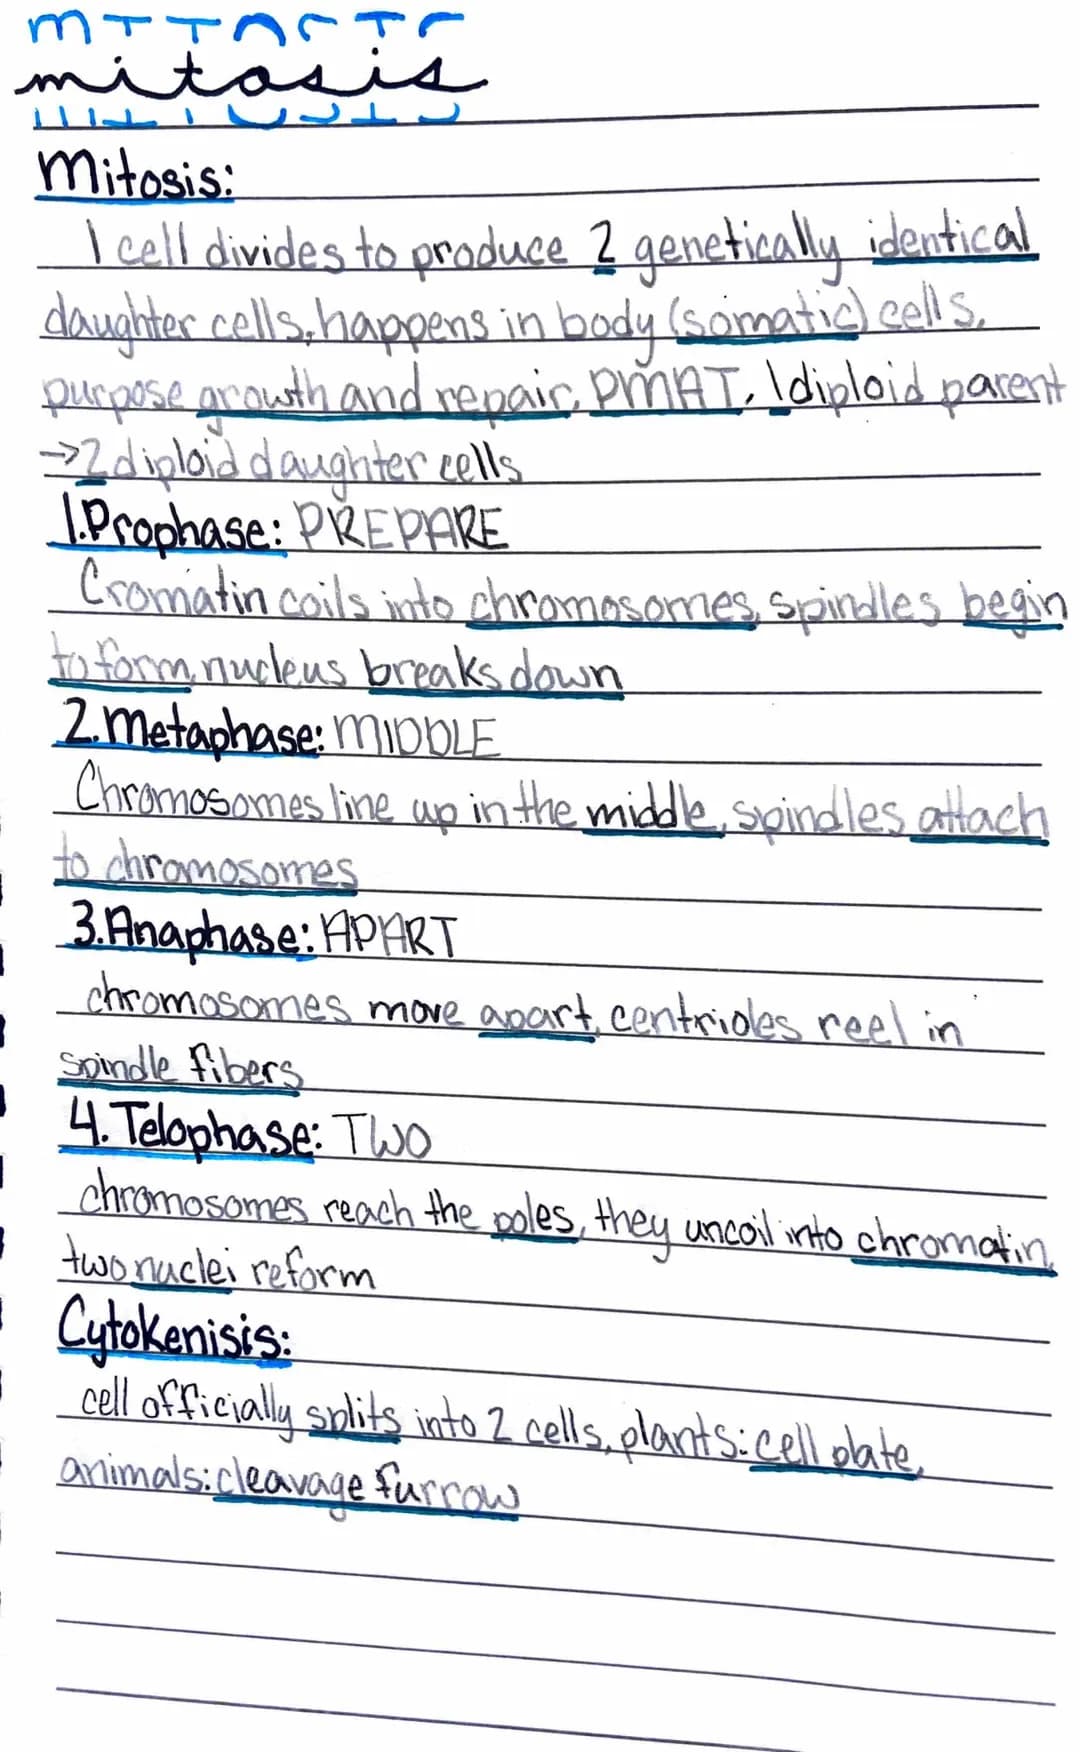 MITOSIS
mitosis
Mitosis:
1 cell divides to produce 2 genetically identical
daughter cells, happens in body (somatic) cells,
purpose growth and repair, PMAT, 1 diploid parent
→2 diploid daughter cells
1.Prophase: PREPARE
Cromatin coils into chromosomes, spindles begin
to form, nucleus breaks down
2.Metaphase: MIDDLE
Chromosomes line up in the middle, spindles attach
to chromosomes
3.Anaphase: APART
chromosomes move apart, centrioles reel in
spindle fibers
4. Telophase: TWO
chromosomes reach the poles, they uncoil into chromatin,
two nuclei reform
Cytokenisis:
cell officially splits into 2 cells, plants: cell plate,
animals: cleavage furrow